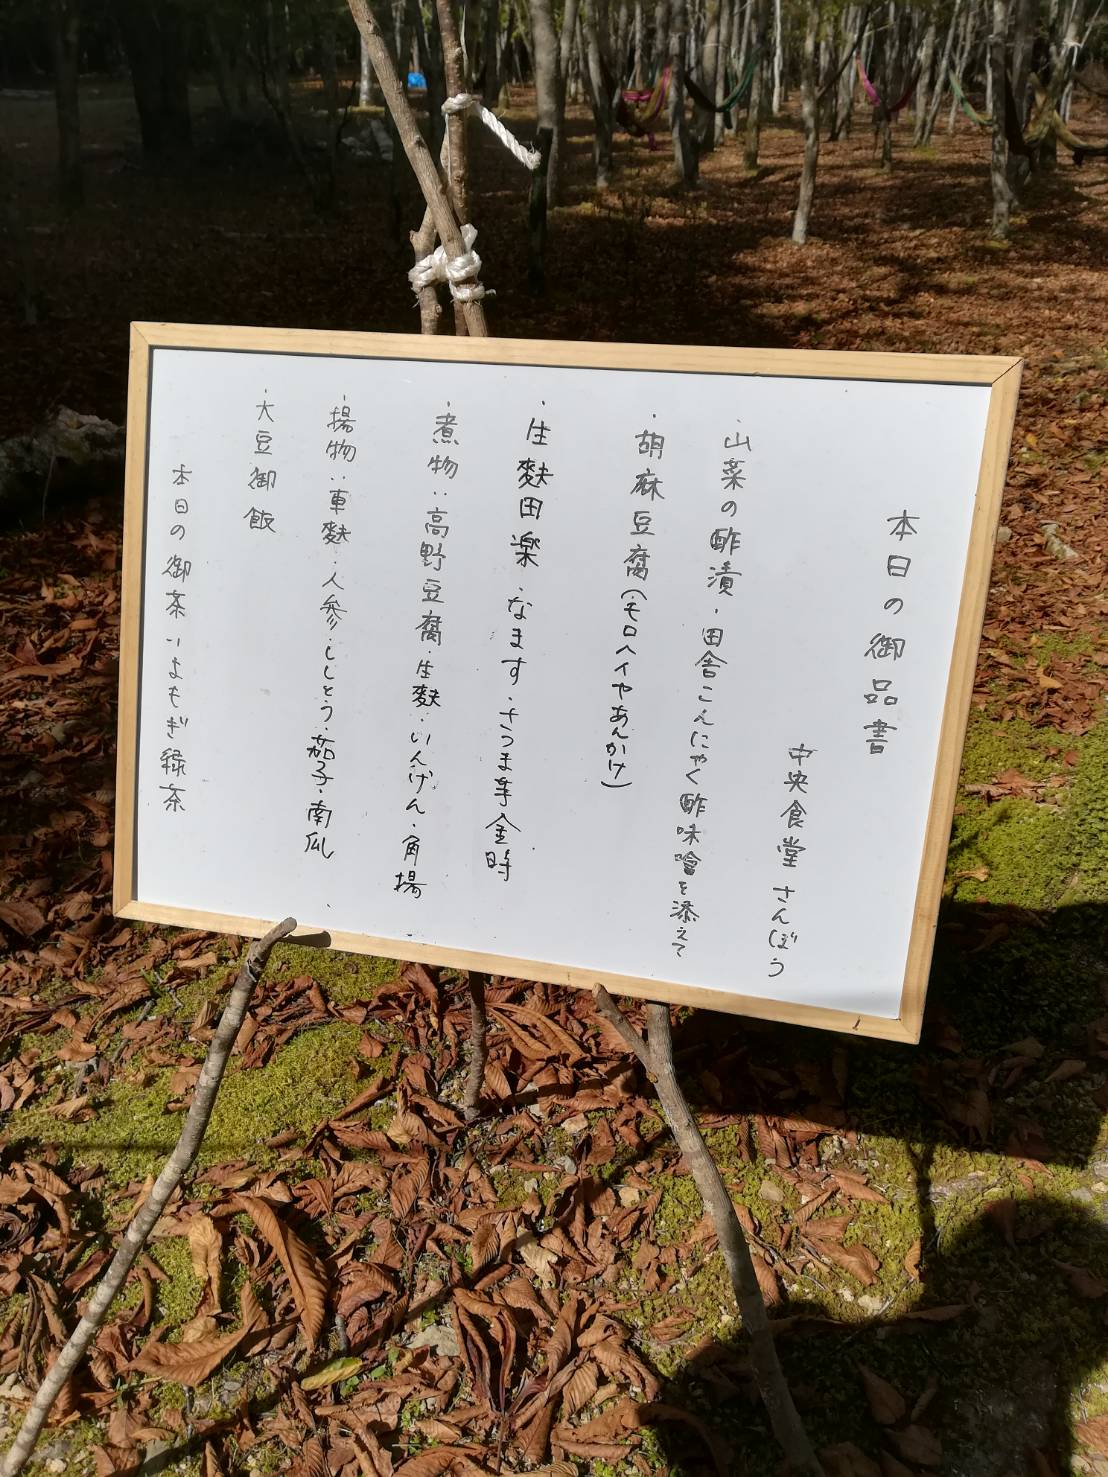 本日の御品書
中央食堂 さんぼう
・山菜の酢漬・田舎こんにゃく酢味噌を添えて
・胡麻豆腐(モロヘイヤあんかけ)
・生麩田楽・なます・さつま芋金時
・煮物：高野豆腐・生麩・いんげん・角揚
・揚物：車麩・人参・ししとう・茄子・南瓜
・大豆御飯
本日の御茶：よもぎ緑茶